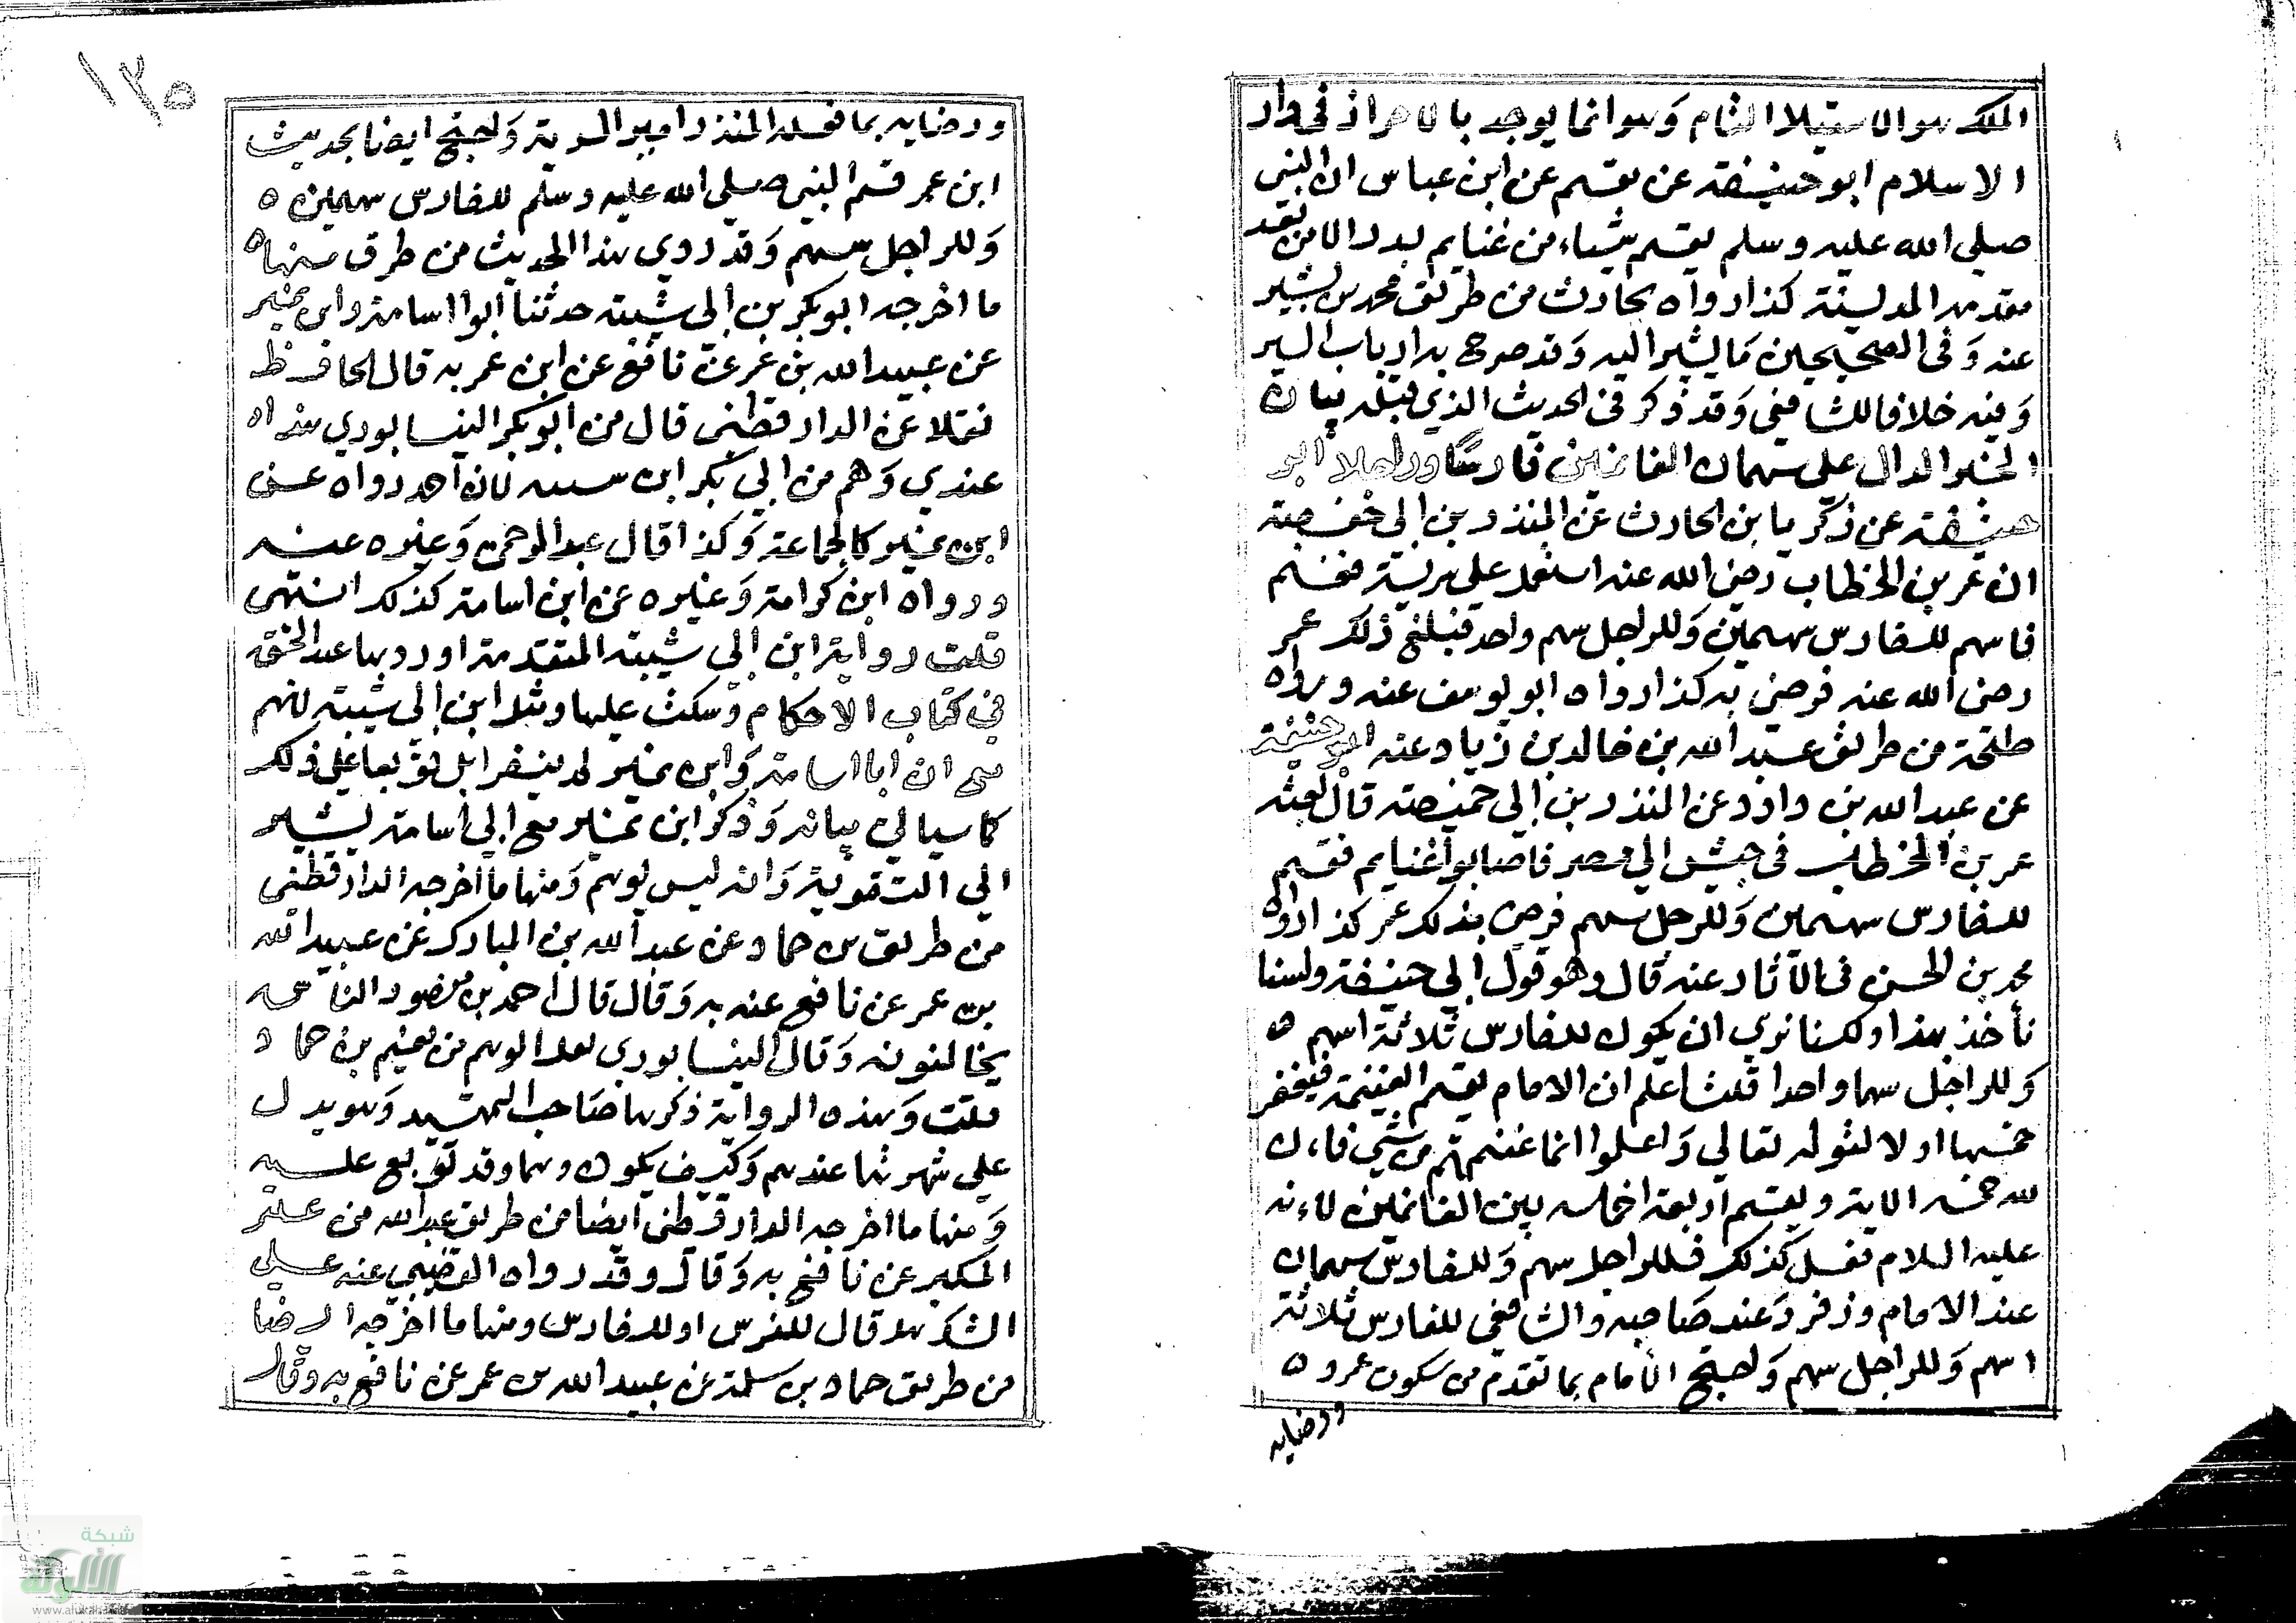 الملك هو الاستيلا التام وهو انما يوجد بالاحراز في دار
الاسلام ابو حنيفة عن مقسم عن ابن عباس ان النبي
صلى الله عليه وسلم لم يقسم شياء من غنايم بدر الا من بعد
مقدمه المدينة كذا رواه بحارث من طريق محمد بن بشير
عنه وفي الصحيحين ما يشير اليه وقد صرح به ارباب السير
وفيه خلافا للشافعي وقد ذكر في الحديث الذي قبله بيان
الخبر الدال على سهمان الغانمين فارسا وراجلا ابو
حنيفة عن زكريا بن الحارث عن المنذر بن ابي حفصة
ان عمر بن الخطاب رضي الله عنه استعمله على سرية فغنم
فاسهم للفارس سهمين وللراجل سهم واحد فبلغ ذلك عمر
رضي الله عنه فرضي به كذا رواه ابو يوسف عنه ورواه
طلحة من طريق عبد الله بن خالد بن زياد عنه ابو حنيفة
عن عبد الله بن داود عن المنذر بن ابي حميصة قال بعثه
عمر بن الخطاب في جيش الي مصر فاصابوا غنايم فقسم
للفارس سهمين وللرجل سهم فرضي بذلك عمر كذا رواه
محمد بن الحسن في الآثار عنه قال وهو قول ابي حنيفة ولسنا
نأخذ بهذا ولكنا نري ان يكون للفارس ثلاثة اسهم ه
وللراجل سهما واحدا قلت اعلم ان الامام يقسم الغنيمة فيغفر
خمسها اولا لقوله تعالي واعلموا انما غنمتم من شيء فان
لله خمسه الاية ويقسم اربعة اخماسه بين الغانمين لانه
عليه السلام فعل كذلك فللراجل سهم وللفارس سهمان
عند الامام وزفر وعند صاحبيه والشافعي للفارس ثلاثة
اسهم وللراجل سهم ولحتج الامام بما تقدم من سكون عمر وه
ورضايه
١٣٥
ورضايه بما فعله المنذر امير السرية ولحتج ايضا بحديث
ابن عمر قسم النبي صلى الله عليه وسلم للفارس سهمين ه
وللراجل سهم وقد روي هذا الحديث من طرق منها ه
ما اخرجه ابو بكر بن ابي شيبة حدثنا ابو اسامة وابن نمير
عن عبيد الله بن عمر عن نافع عن ابن عمر به قال الحافظ
نقلا عن الدارقطني قال من ابو بكر النيسابوري هذا ه
عندي وهم من ابي بكر ابن شيبه لان احمد رواه عن
ابن نمير كالجماعة وكذا قال عبد الرحمن وغيره عنه
ورواه ابن كرامة وغيره عن ابن اسامة كذلك انتهى
قلت رواية ابن ابي شيبة المتقدمة اوردها عبد الحق
في كتاب الاحكام وسكت عليها ومثل ابن ابي شيبة لا يهم
مع ان ابا اسامة وابن نمير لم ينفرد بل توبعا على ذلك
كما سيالي بيانه وذكر ابن نمير مع ابي اسامة يشير
الي التقوية وانه ليس بوهم ومنها ما اخرجه الدارقطني
من طريق بن حماد عن عبد الله بن المبارك عن عبيد الله
بن عمر عن نافع عنه به وقال قال احمد بن منصور الناس
يخالفونه وقال النيسابوري لعل الوهم من نعيم بن حماد
قلت وهذه الرواية ذكرها صاحب التمهيد وهو يدل
علي شهرتها عندهم وكيف يكون وهما وقد توبع عليه
ومنها ما اخرجه الدارقطني ايضا من طريق عبد الله من عمر
المكبر عن نافع به وقال وقد رواه القعنبي عنه علي
الشك هل قال للفرس او للفارس ومنها ما اخرجه ايضا
من طريق حماد بن سلمة عن عبيد الله بن عمر عن نافع به وقال
شبكة
الألوكة